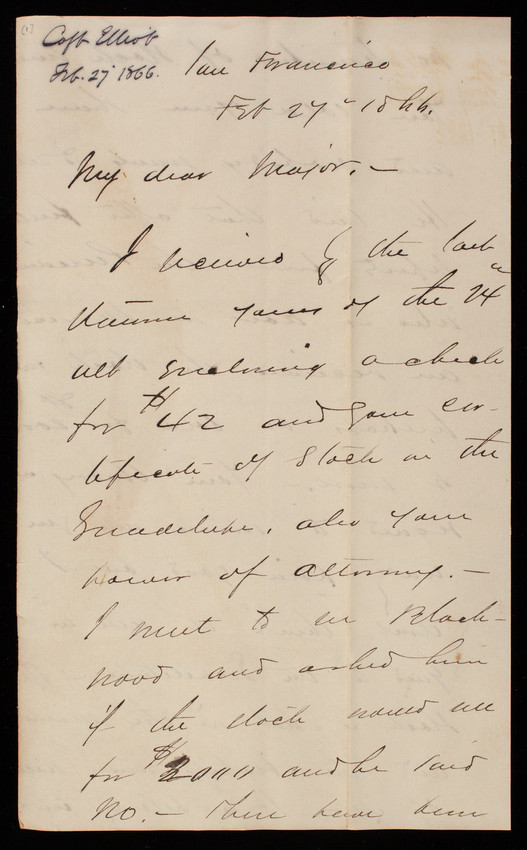 (1)
Capt Elliot
Feb. 27 1866.
San Francisco
Feb 27" 1866.
My dear Major, —
I received by the last
steamer yours of the 24"
ult enclosing a check
for $42 and your cer-
tificate of Stock in the
Guadelupe, also your
power of attorney. —
I went to see Black-
wood and asked him
if the stock would sell
for $2000 and he said
No. — There have been